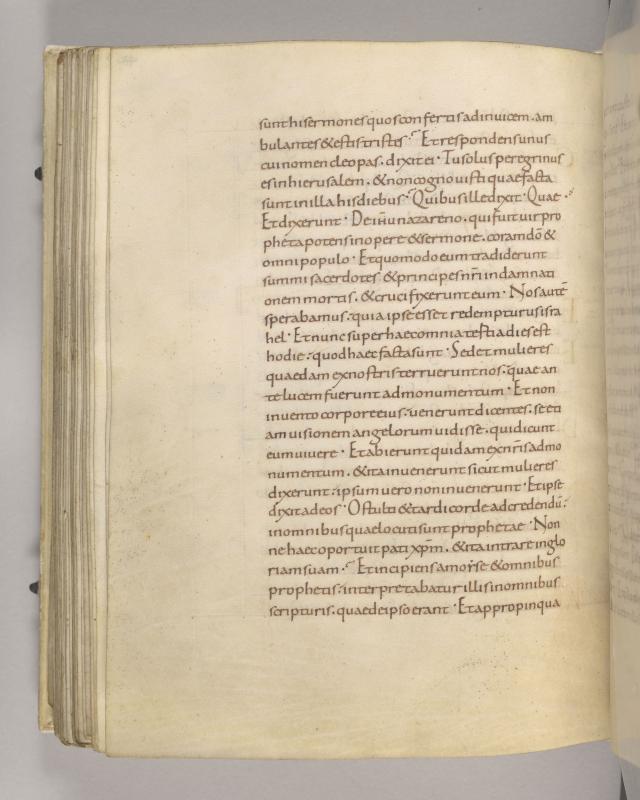 sunt hi sermones quos confertis adinuicem. am
bulantes & estis tristes. Et respondens unus
cui nomen cleopas. dixit ei. Tu solus peregrinus
es in hierusalem. & non cognouisti quae facta
sunt in illa his diebus. Quibus ille dixit. Quae.
Et dixerunt. De ihu nazareno. qui fuit uir pro
pheta potens in opere & sermone. coram dō &
omni populo. Et quomodo eum tradiderunt
summi sacerdotes & principes nri in damnati
onem mortis. & crucifixerunt eum. Nos autē
sperabamus: quia ipse esset redempturus isra
hel. Et nunc super haec omnia tertia dies est
hodie: quod haec facta sunt. Sed et mulieres
quaedam ex nostris terruerunt nos: quae an
te lucem fuerunt ad monumentum. Et non
inuento corpore eius: uenerunt dicentes. se eti
am uisionem angelorum uidisse. qui dicunt
eum uiuere. Et abierunt quidam ex nris ad mo
numentum. & ita inuenerunt sicut mulieres
dixerunt: ipsum uero non inuenerunt. Et ipse
dixit ad eos. O stulti & tardi corde ad credendū:
in omnibus quae locuti sunt prophetae. Non
ne haec oportuit pati xpm. & ita intrare in glo
riam suam. Et incipiens a moyse & omnibus
prophetis: interpretabatur illis in omnibus
scripturis. quae de ipso erant. Et appropinqua